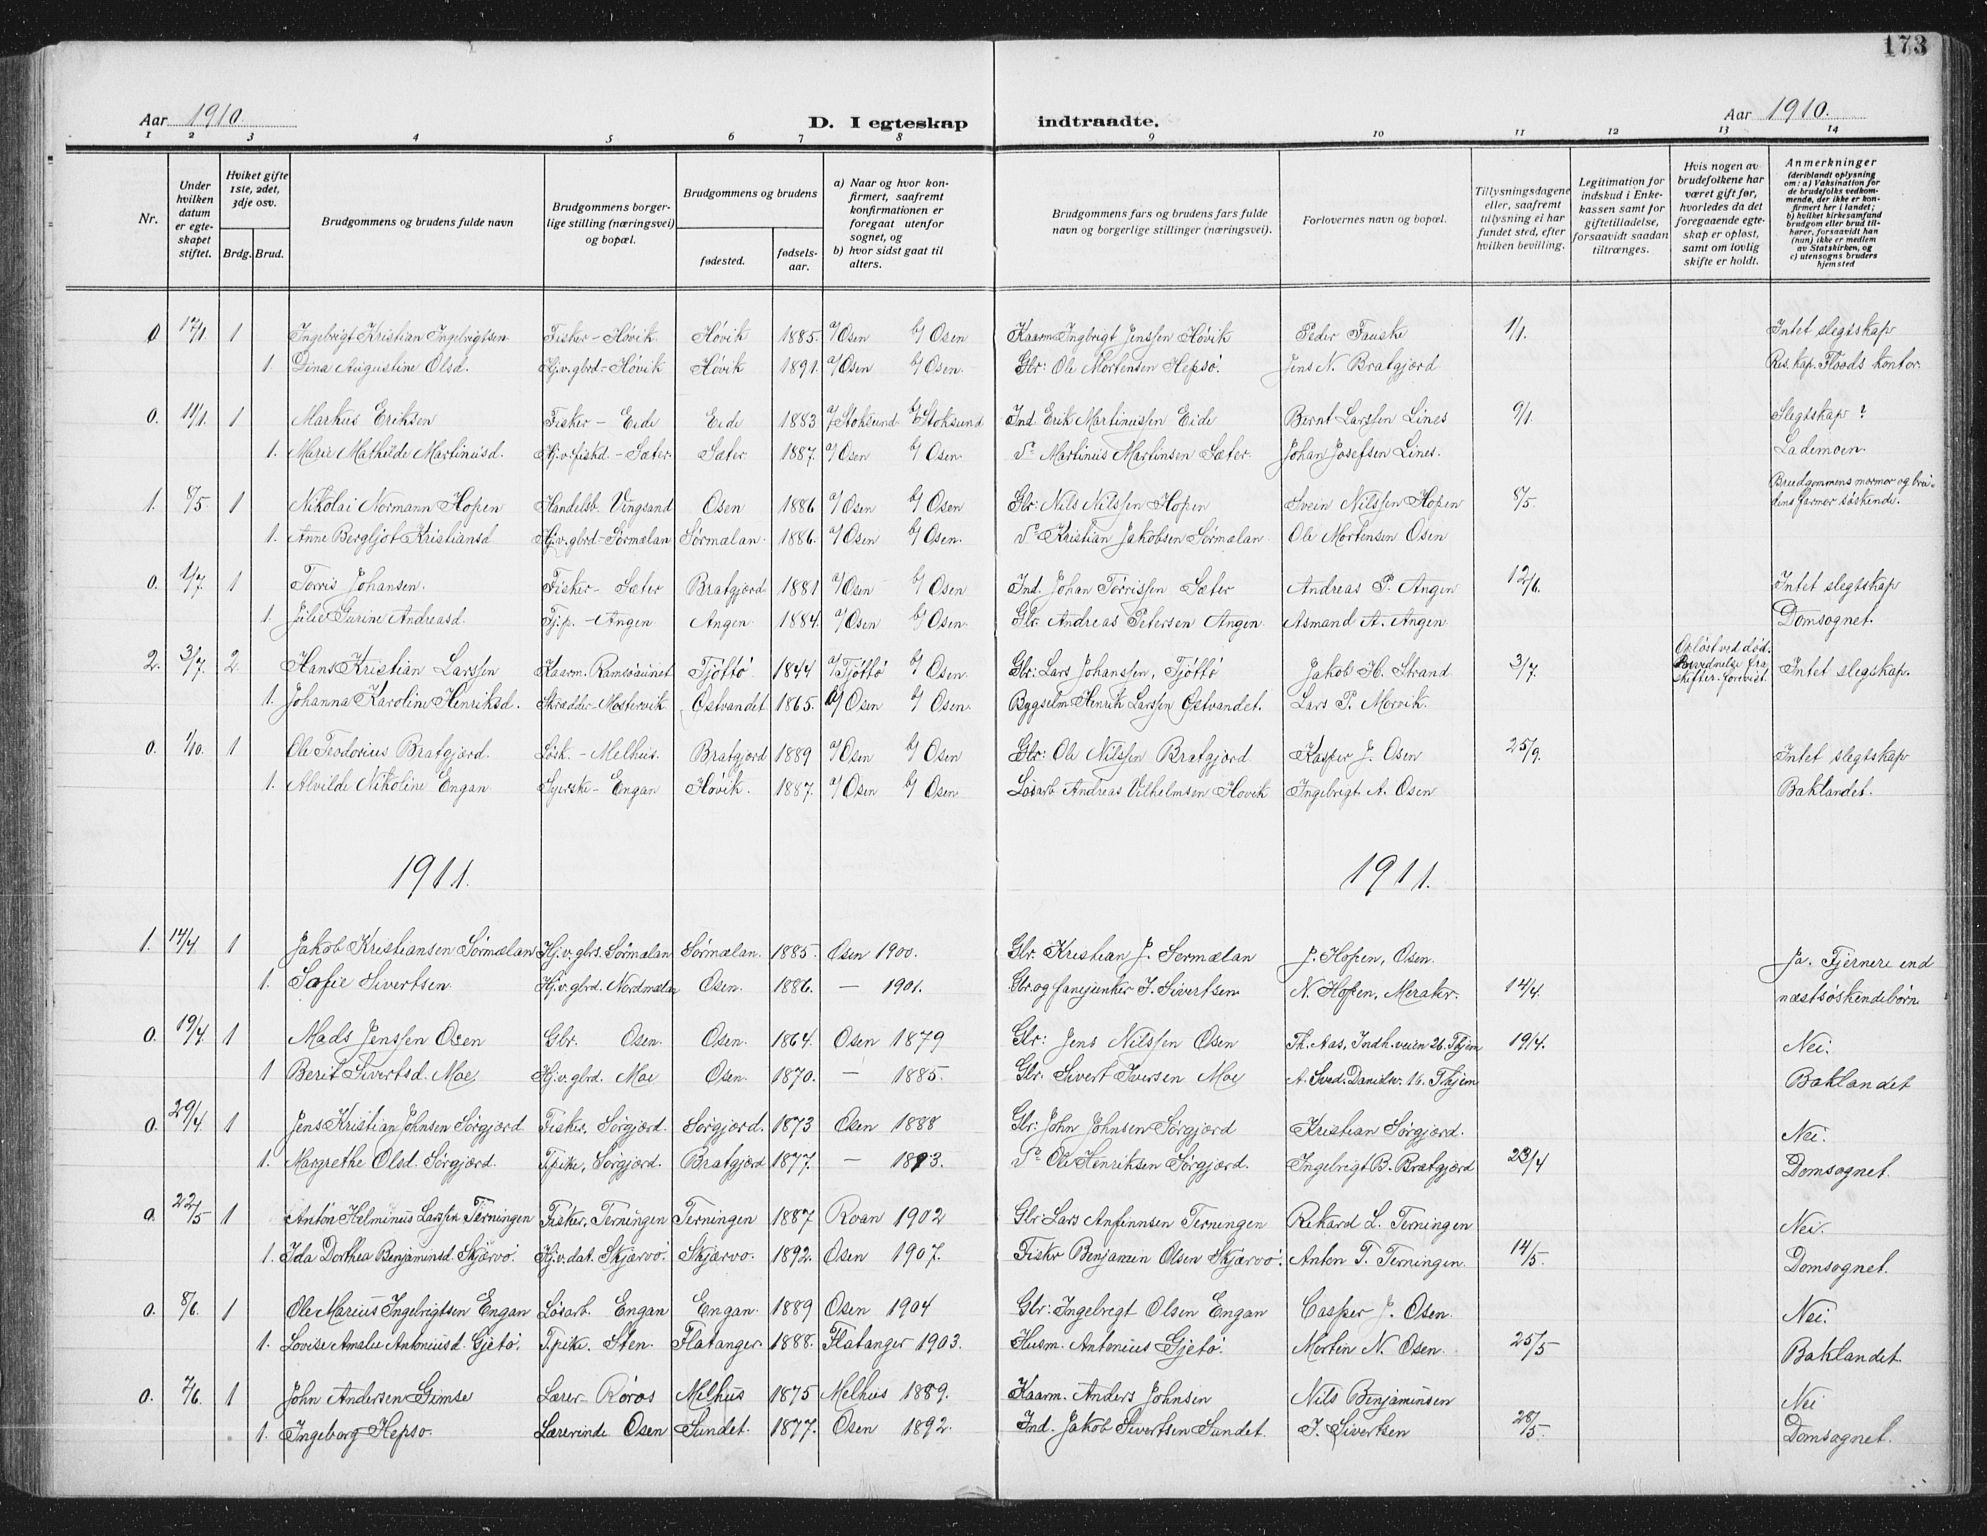 173
Aar 1910. D. I egteskap indtraadte. Aar 1910.
1 2 3 4 5 6 7 8 9 10 11 12 13 14
Nr.
Under hvilken datum er egteskapet stiftet.
Hviket gifte 1ste, 2det, 3dje osv.
Brdg. Brud.
Brudgommens og brudens fulde navn
Brudgommens borgerlige stilling (næringsvei) og bopæl.
Brudgommens og brudens
fødested.
fødselsaar.
a) Naar og hvor konfirmert, saafremt konfirmationen er foregaat utenfor sognet, og
b) hvor sidst gaat til alters.
Brudgommens fars og brudens fars fulde navn og borgerlige stillinger (næringsvei).
Forlovernes navn og bopæl.
Tillysningsdagene eller, saafremt tillysning ei har fundet sted, efter hvilken bevilling.
Legitimation for indskud i Enkekassen samt for giftetilladelse, forsaavidt saadan tiltrænges.
Hvis nogen av brudefolkene har været gift før, hvorledes da det foregaaende egteskap er opløst, samt om lovlig skifte er holdt.
Anmerkninger (deriblandt oplysning om: a) Vaksination for de brudefolks vedkommende, der ikke er konfirmert her i landet; b) hvilket kirkesamfund brudgom eller brud tilhører, forsaavidt han (hun) ikke er medlem av Statskirken, og c) utensogns bruders hjemsted
0 17/1 1 Ingebrigt Kristian Ingebrigtsen Fisker - Høvik Høvik 1885. a/ Osen b/ Osen Kaarm. Ingbrigt Jenssen Høvik Peder Fauske 1/1. Intet slegtskap
1 Dina Augustine Olsd. Hj.v.gbrd - Høvik Høvik 1891. a/ Osen b/ Osen. Gbr: Ole Mortensen Hepsø. Jens N. Bratgjord Res. kap. Floods kontor.
0. 1 Markus Eriksen Fisker - Eide Eide 1883 a/ Stoksund b/ Stoksund Ind. Erik Martinussen Eide Bernt Larssen Lines 9/1. Slegtskap?
1. Marie Mathilde Martinusd. Hj.v.fiskd - Sæter. Sæter 1887. a/ Osen b/ Osen. Do Martinus Martinsen Sæter. Johan Josefsen Lines. Lademoen.
1. 8/5 1 Nikolai Normann Hopen Handelsb. Vingsand Osen 1886 a/ Osen b/ Osen Gbr: Nils Nilssen Hopen Svein Nilssen Hopen 8/5. Brudgommens mormor og brudens farmor søskende.
1. Anne Bergljot Kristiansd Hj.v.gbrd - Sørmælan Sørmælan. 1886. a/ Osen b/ Osen. Do Kristian Jakobsen Sørmælan Ole Mortensen Osen
0. 1/7 1 Torris Johansen. Fisker - Sæter Bratgjord 1881 a/ Osen b/ Osen Ind. Johan Tørrissen Sæter Andreas P. Angen 12/6. Intet slegtskap
1 Julie Sarine Andreasd. Tj.p. - Angen Angen 1884. a/ Osen b/ Osen. Gbr. Andreas Petersen Angen Asmund A. Angen Domsognet.
2. 3/7. 2 Hans Kristian Larssen Kaarm. Ramsøaunet Tjøttø 1844 a/ Tjøttø b/ Osen Gbr: Lars Johanssen, Tjøttø Jakob H. Strand 3/7. Opløst ved død. Bevidnelse fra skifter. forevist. Intet slegskap.
1. Johanna Karoline Henriksd. Skrædder - Mostervik Østvandet 1865. a/ Osen b/ Osen. Bygselm Henrik Larssen Østvandet. Lars P. Morvik.
0. 1/10. 1 Ole Teodorius Bratgjord. Løsk. - Melhus. Bratgjord 1889 a/ Osen b/ Osen Gbr: Ole Nilssen Bratgjord Kasper J. Osen 25/9. Intet slegtskap
1. Alvilde Nikoline Engan. Syerske - Engan Høvik. 1887. a/ Osen b/ Osen Løsarb Andreas Vilhelmsen Høvik Ingebrigt A. Osen Baklandet.
1911. 1911.
1. 14/4 1 Jakob Kristiansen Sørmælan Hj.v.gbrs. Sørmælan Sørmælan. 1885. Osen 1900. Gbr. Kristian J. Sørmælan J. Hopen, Osen. Ja. Fjernere end
1. Sofie Sivertsen Hj.v.gbrd. Nordmælan Osen. 1886. — 1901. Gbr og fanejunker J. Sivertsen N. Hopen, Meraker. 14/4. næstsøskendebørn
0. 19/4. 1 Mads Jenssen Osen Gbr. Osen. Osen. 1864. Osen 1879 Gbr: Jens Nilssen Osen Th. Aas, Indh.veien 26. Thjem 19/4. Nei.
1 Berit Sivertsd. Moe Hj.v.gbrd. Moe Osen. 1870. — 1885. Gbr. Sivert Iversen Moe A. Sved. Danielsv. 16. Thjem Baklandet
0. 29/4 1 Jens Kristian Johnsen Sørgjærd Fisker, Sørgjærd. Sørgjærd. 1873 Osen 1888 Gbr: John Johnsen Sørgjærd Kristian Sørgjærd. Nei.
1. Margrethe Olsd. Sørgjærd. Tj.pike, Sørgjærd. Bratgjærd 1877. — 1893. Do Ole Henriksen Sørgjærd. Ingebrigt B. Bratgjærd 23/4 Domsognet.
0. 22/5 1 Anton Helminus Larssen Terningen Fisker, Terningen Terningen 1887 Roan 1902 Gbr: Lars Anfinnsen Terningen Rikard L. Terningen Nei.
1. Ida Dorthea Benjaminsd. Skjærvø. Hj.v.dat. Skjærvø. Skjærvø. 1892. Osen 1907. Fisker Benjamin Olsen Skjærvø. Anton T. Terningen. 14/5. Domsognet.
0. 8/6. 1 Ole Marius Ingebrigtsen Engan Løsarb. Engan Engan. 1889 Osen 1904 Gbr: Ingebrigt Olsen Engan Casper J. Osen. Nei.
1. Lovise Amalie Antoniusd. Gjetø. Tj.pike. Sten. Flatanger. 1888. Flatanger 1903. Husm. Antonius Gjetø. Morten N. Osen. 25/5 Baklandet.
0. 7/6. 1 John Andersen Gimse Lærer - Røros Melhus 1875 Melhus 1889. Kaarm. Anders Johnsen Nils Benjaminsen Nei
1. Ingeborg Hepsø. Lærerinde Osen Sundet. 1877. Osen 1892. Ind. Jakob Sivertsen Sundet. J. Sivertsen 28/5. Domsognet.